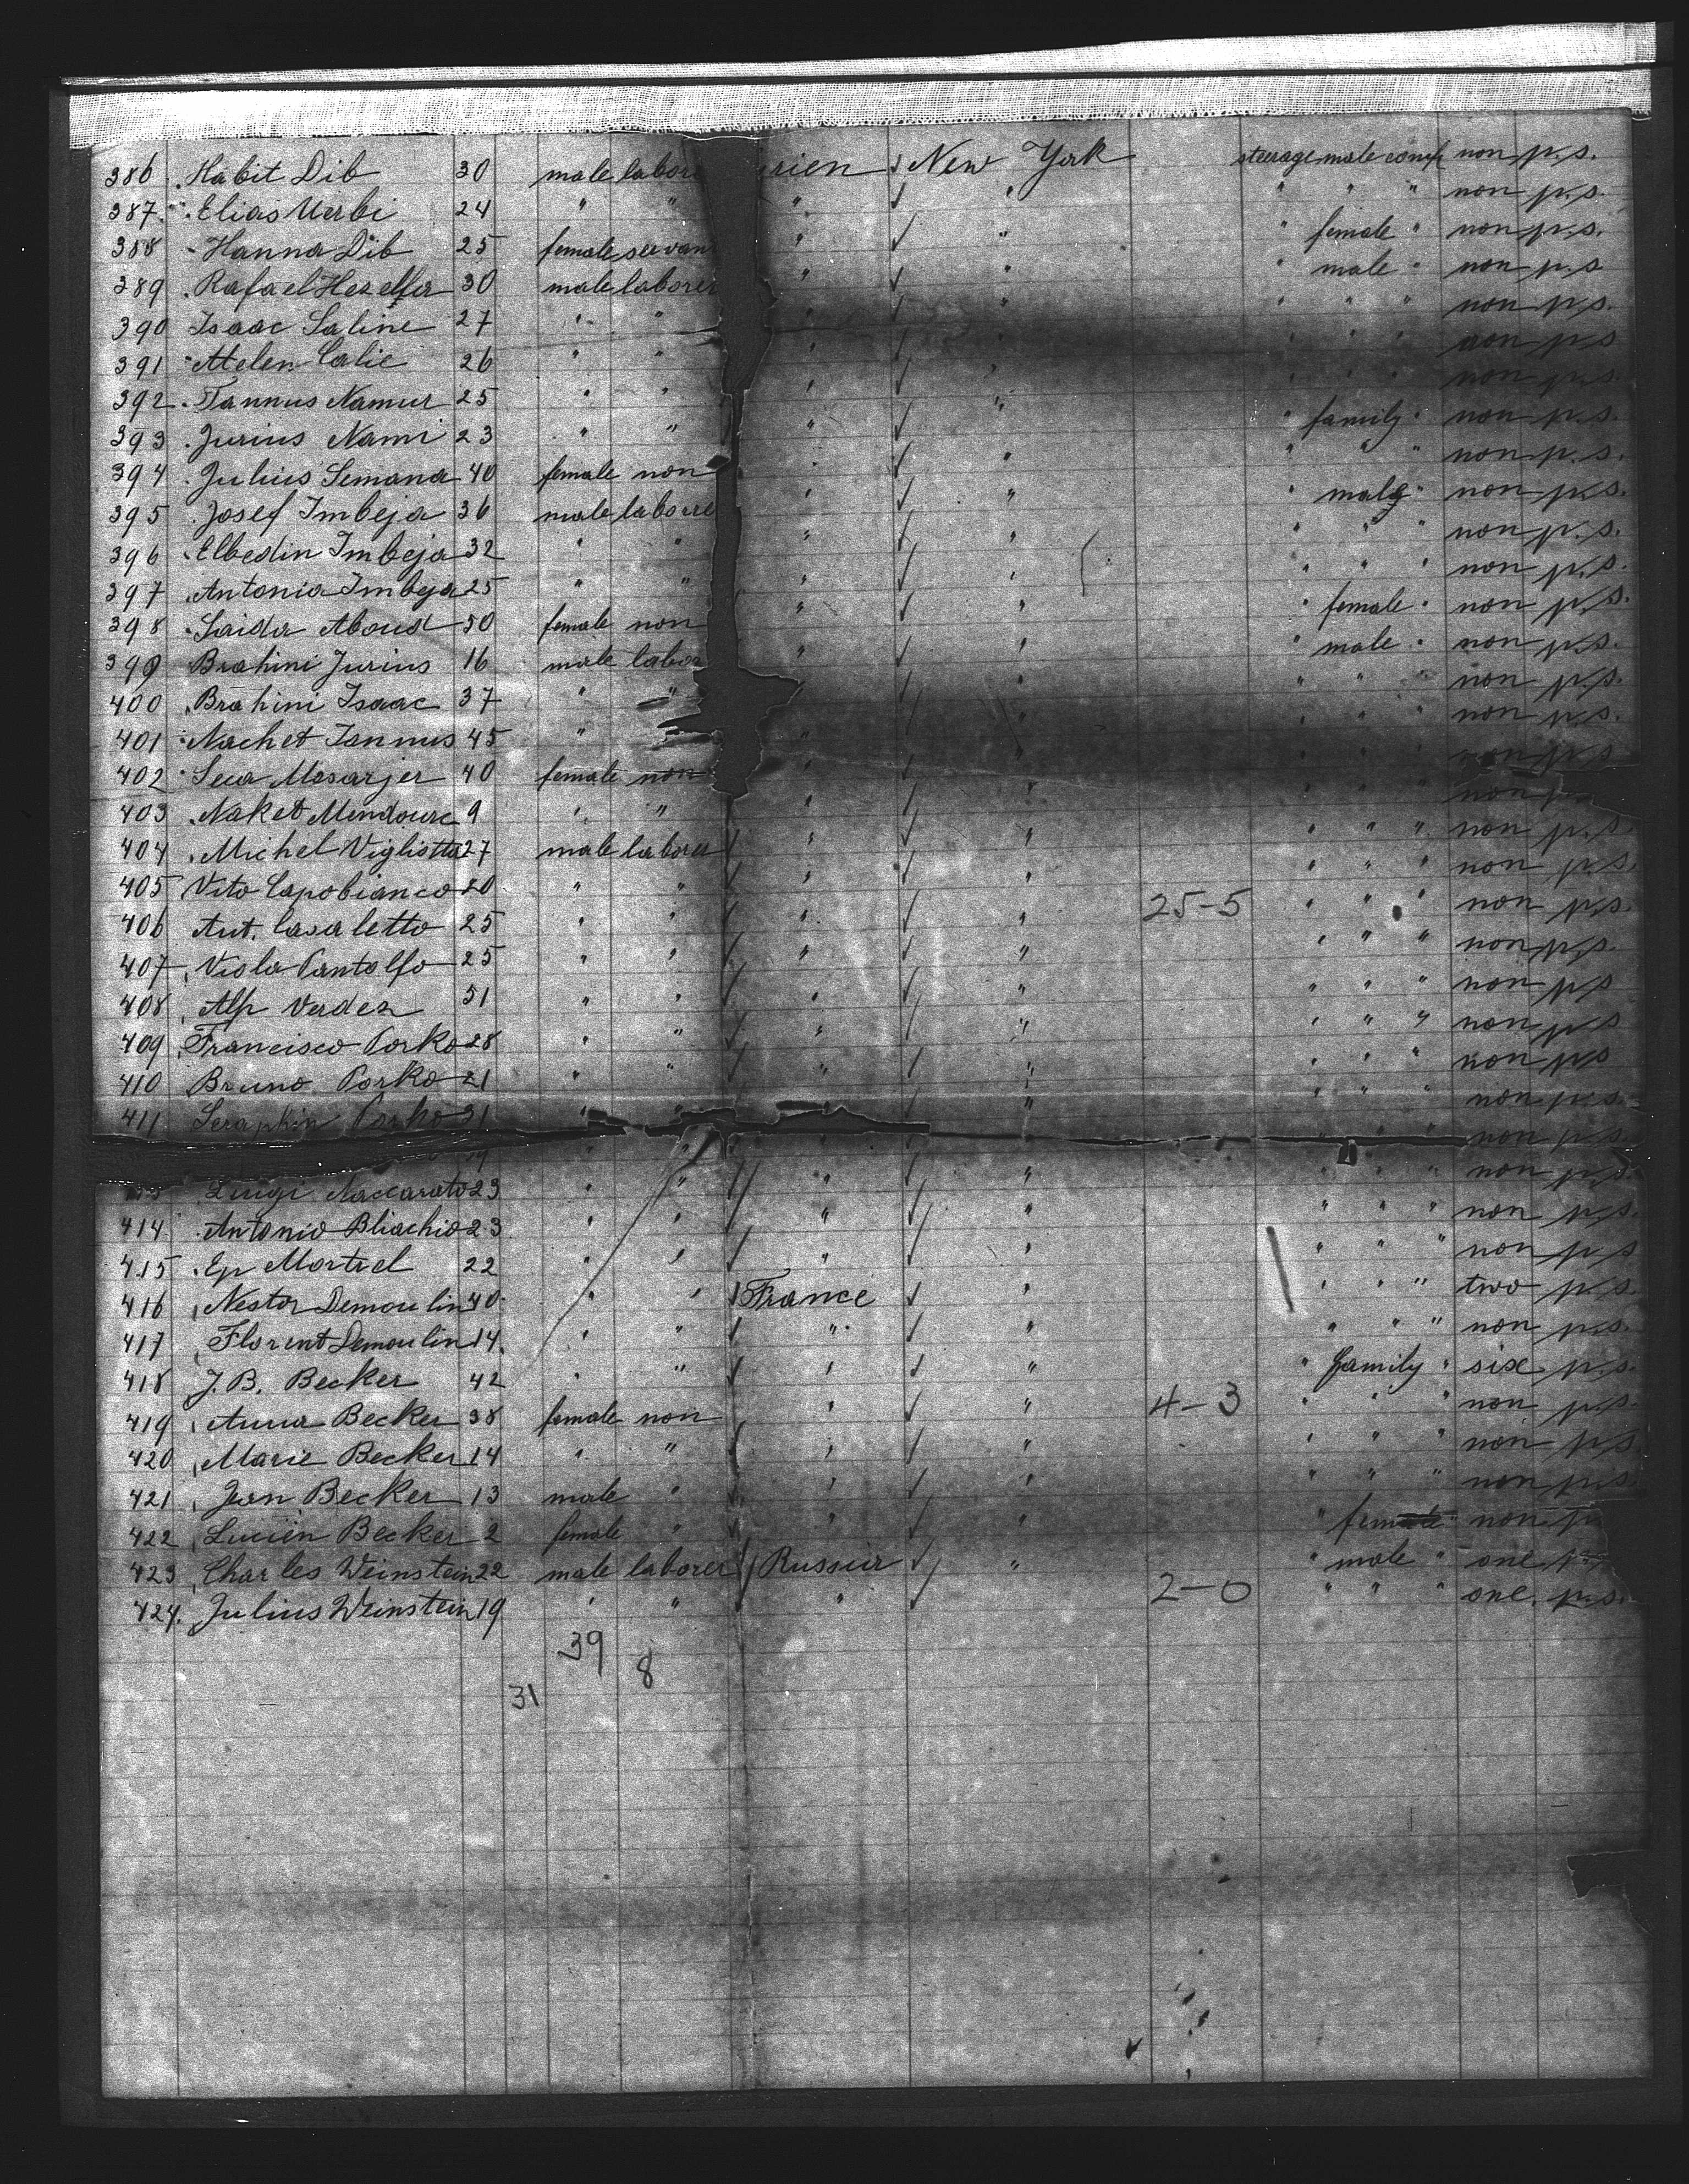 386 Habit Dib 30 male labore rien New York steerage male comp non p.s.
387 Elias Uerbi 24 " " " " " " " non p.s.
388 Hanna Dib 25 female servan " " " female " non p.s.
389 Rafael 30 male laborer " " " male " non p.s
390 Isaac Saline 27 " " " " " " " non p.s.
391 Melen Calic 26 " " " " " " non p.s
392 Tannus Namur 25 " " " " " " " non p.s.
393 Jurius Nami 23 " " " " " family " non p.s.
394 Julius Semana 40 female non " " " " " non p.s.
395 Josef Imbeja 36 male labore " " " male " non p.s.
396 Elbedin Imbeja 32 " " " " " " " non p.s.
397 Antonia Imbeja 25 " " " " " " " non p.s.
398 Saida Aboud 50 female non " " " female " non p.s.
399 Brahini Jurius 16 male labor " " " male " non p.s.
400 Brahini Isaac 37 " " " " " " non p.s.
401 Nachet Tannus 45 " " " " " non p.s.
402 Seca Mosarjer 40 female non " " " " " non p.s
403 Naket Mendourc 9 " " " " " " non p
404 Michel Vigliotta 27 male laborer " " " " " non p.s
405 Vito Capobianco 20 " " " " " " " non p.s.
406 Ant. Casaletto 25 " " " " 25-5 " " " non p.s.
407 Viola Pantolfo 25 " " " " " " " non p.s.
408 Alp Verdez 51 " " " " " " " non p.s
409 Francisco Porko 28 " " " " " " " non p.s
410 Bruno Porko 21 " " " " " " " non p.s
411 Seraphin Porko 31 " " " " " " " non p.s.
" " " " " " non p.s.
Luigi Naccarato 23 " " " " " " " non p.s.
414 Antonio Bliachio 23 " " " " " " " non p.s.
415 Ep Martrel 22 " " " " " " " non p.s
416 Nestor Demoulin 40 " " France " " " " two p.s.
417 Florent Demoulin 14 " " " " " " " non p.s.
418 J. B. Becker 42 " " " " " family " six p.s.
419 Anna Becker 38 female non " " 4-3 " " " non p.s.
420 Marie Becker 14 " " " " " " " non p.s
421 Jean Becker 13 male " " " " " " non p.s.
422 Lucien Becker 2 female " " " " female " non p
423 Charles Weinstein 22 male laborer Russia " " male " one p.s.
424. Julius Weinstein 19 " " " 2-0 " " " one. p.s.
39
8
31